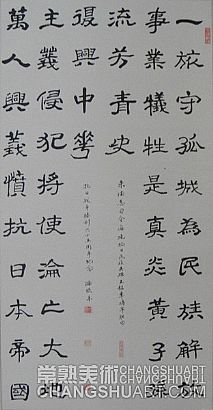 一旅守孤城為民族解放
事業犧牲是真炎黃子孫
流芳青史
萬人興義憤抗日本帝國
主義侵犯將使淪亡大地
復興中華
常熟美術 CHANGSHUART